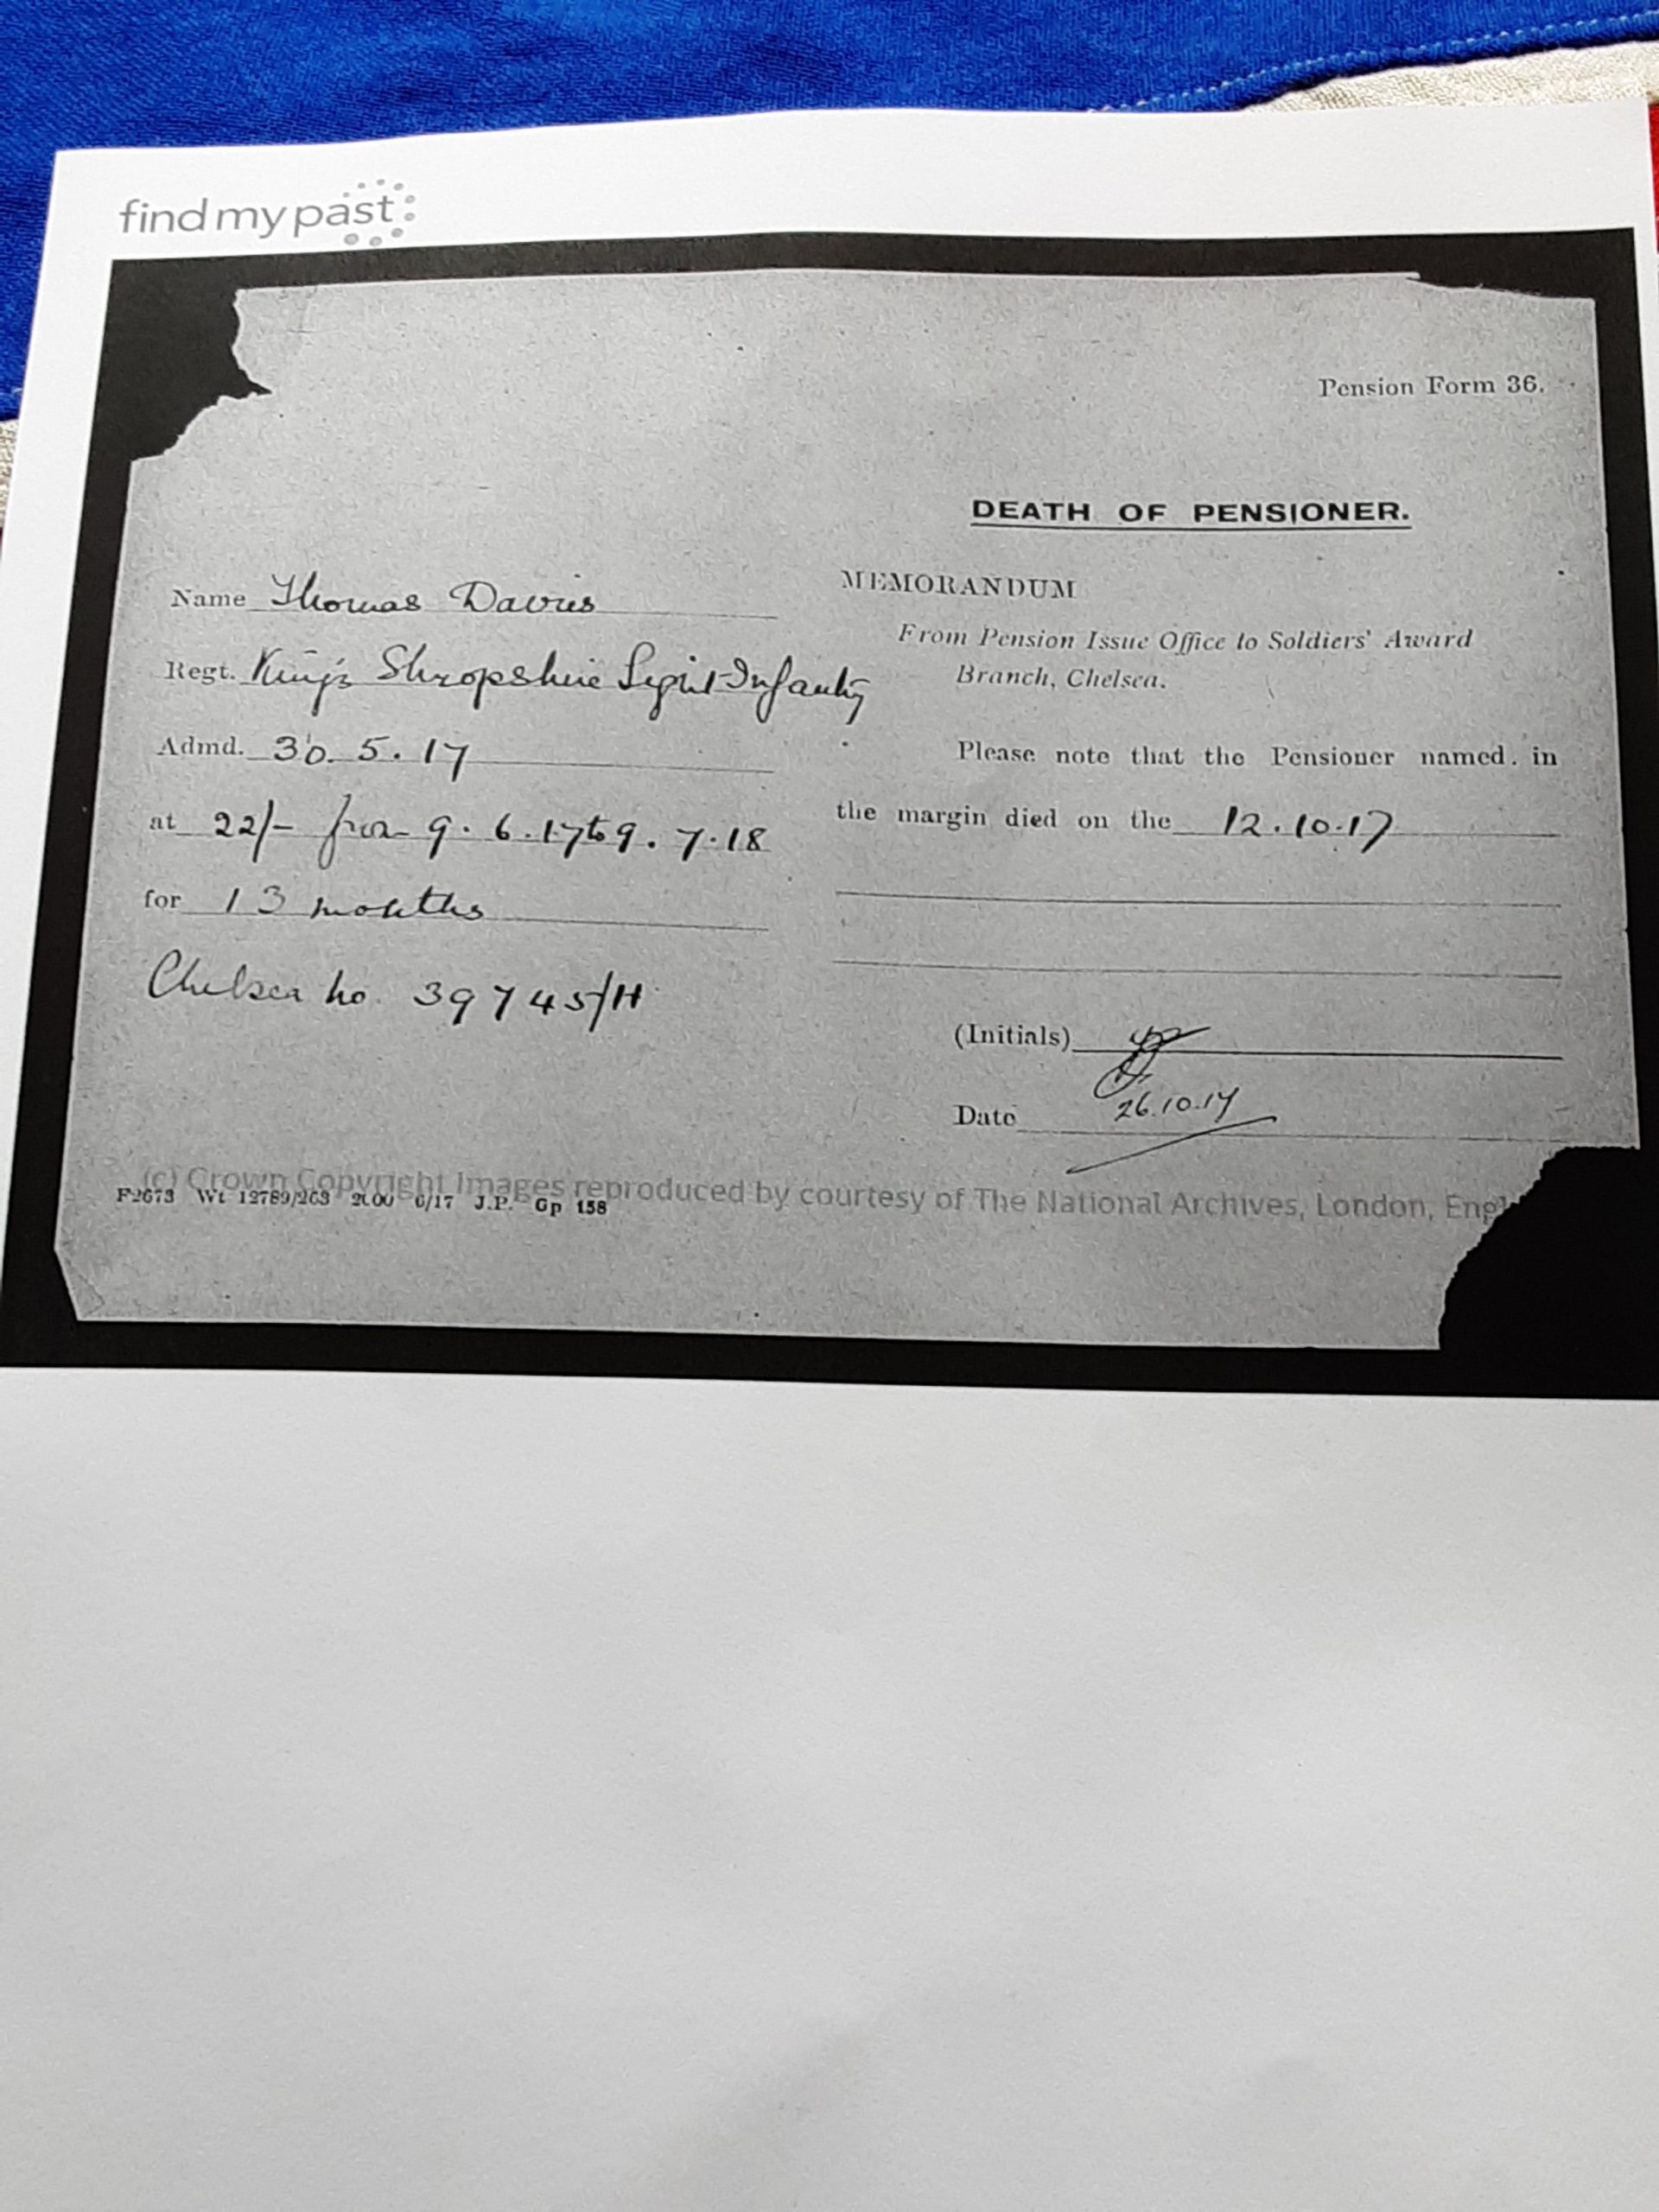 find my past
Pension Form 36.
DEATH OF PENSIONER.
Name Thomas Davies
Regt. King's Shropshire Light Infantry
Admd. 30.5.17
at 22/- from 9.6.17 to 9.7.18
for 13 months
Chelsea no. 39745/H
MEMORANDUM
From Pension Issue Office to Soldiers' Award
Branch, Chelsea.
Please note that the Pensioner named in
the margin died on the 12.10.17
(Initials)
Date 26.10.17
(c) Crown Copyright Images reproduced by courtesy of The National Archives, London, Engl
F2673 Wt 12789/263 2000 6/17 J.P. Gp 158